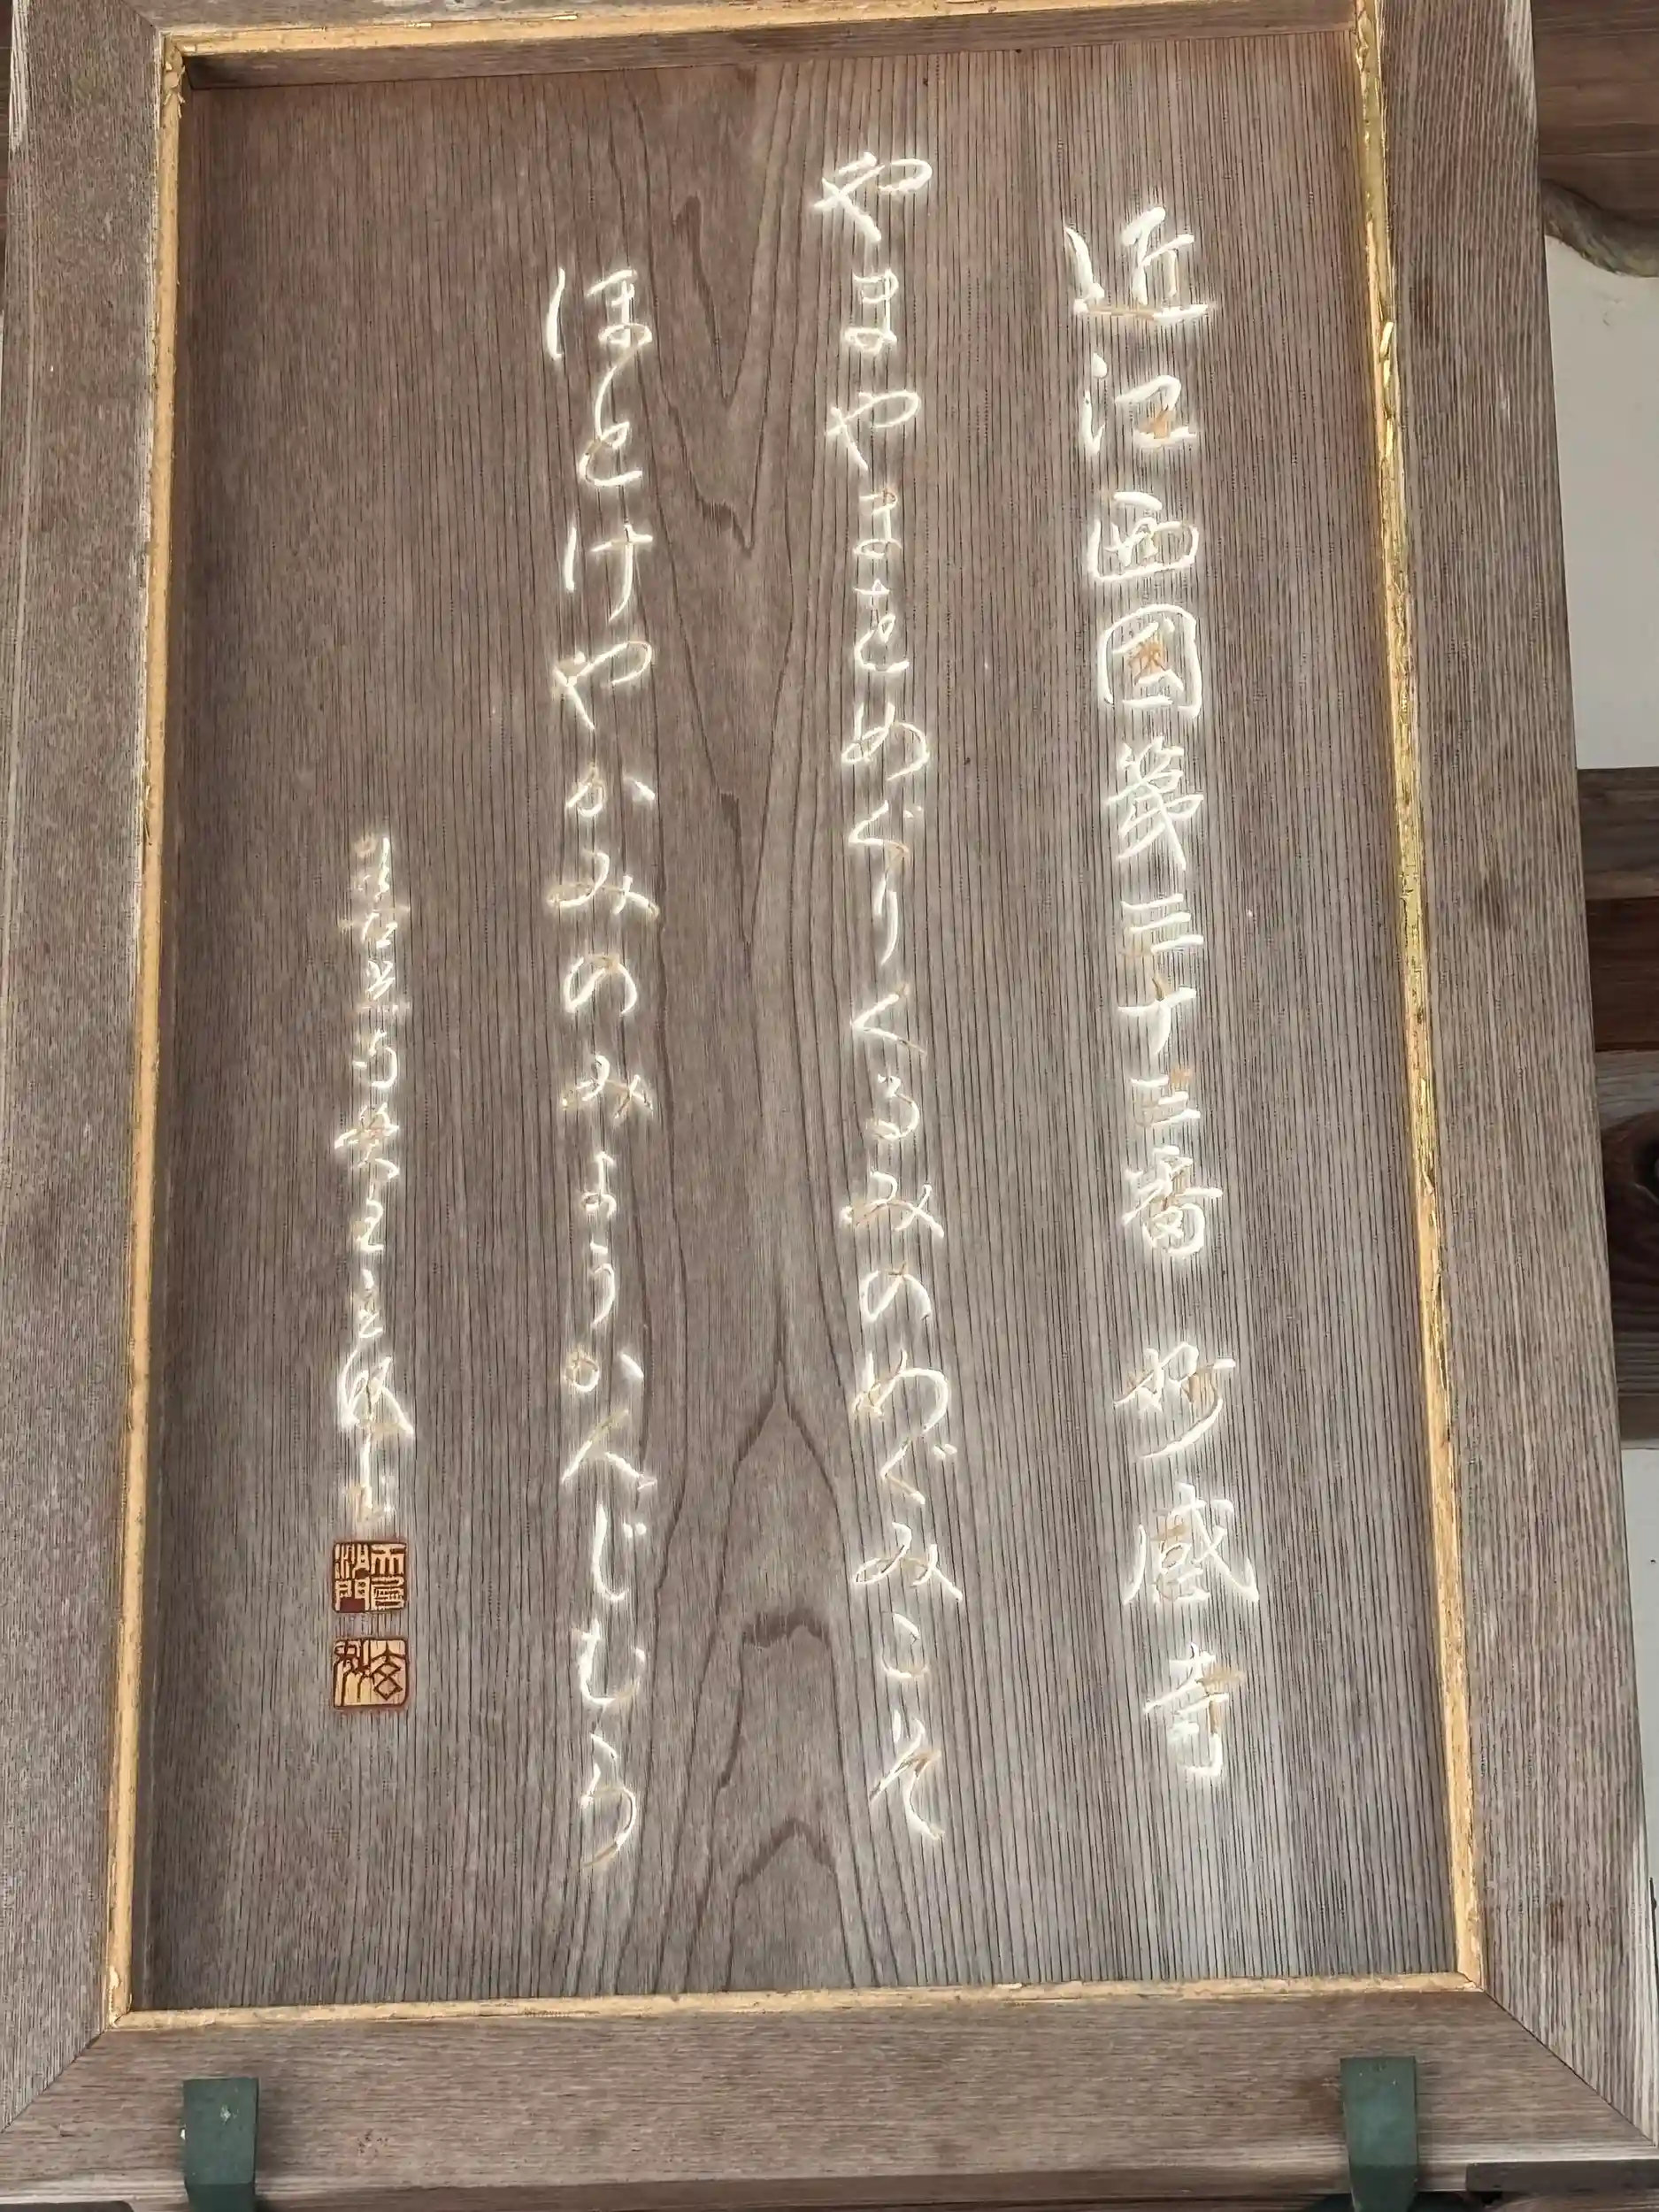 近江西國第三十三番 妙感寺
やまやまをめぐりくるみのめぐみこそ
ほとけやかみのみようかんじむら